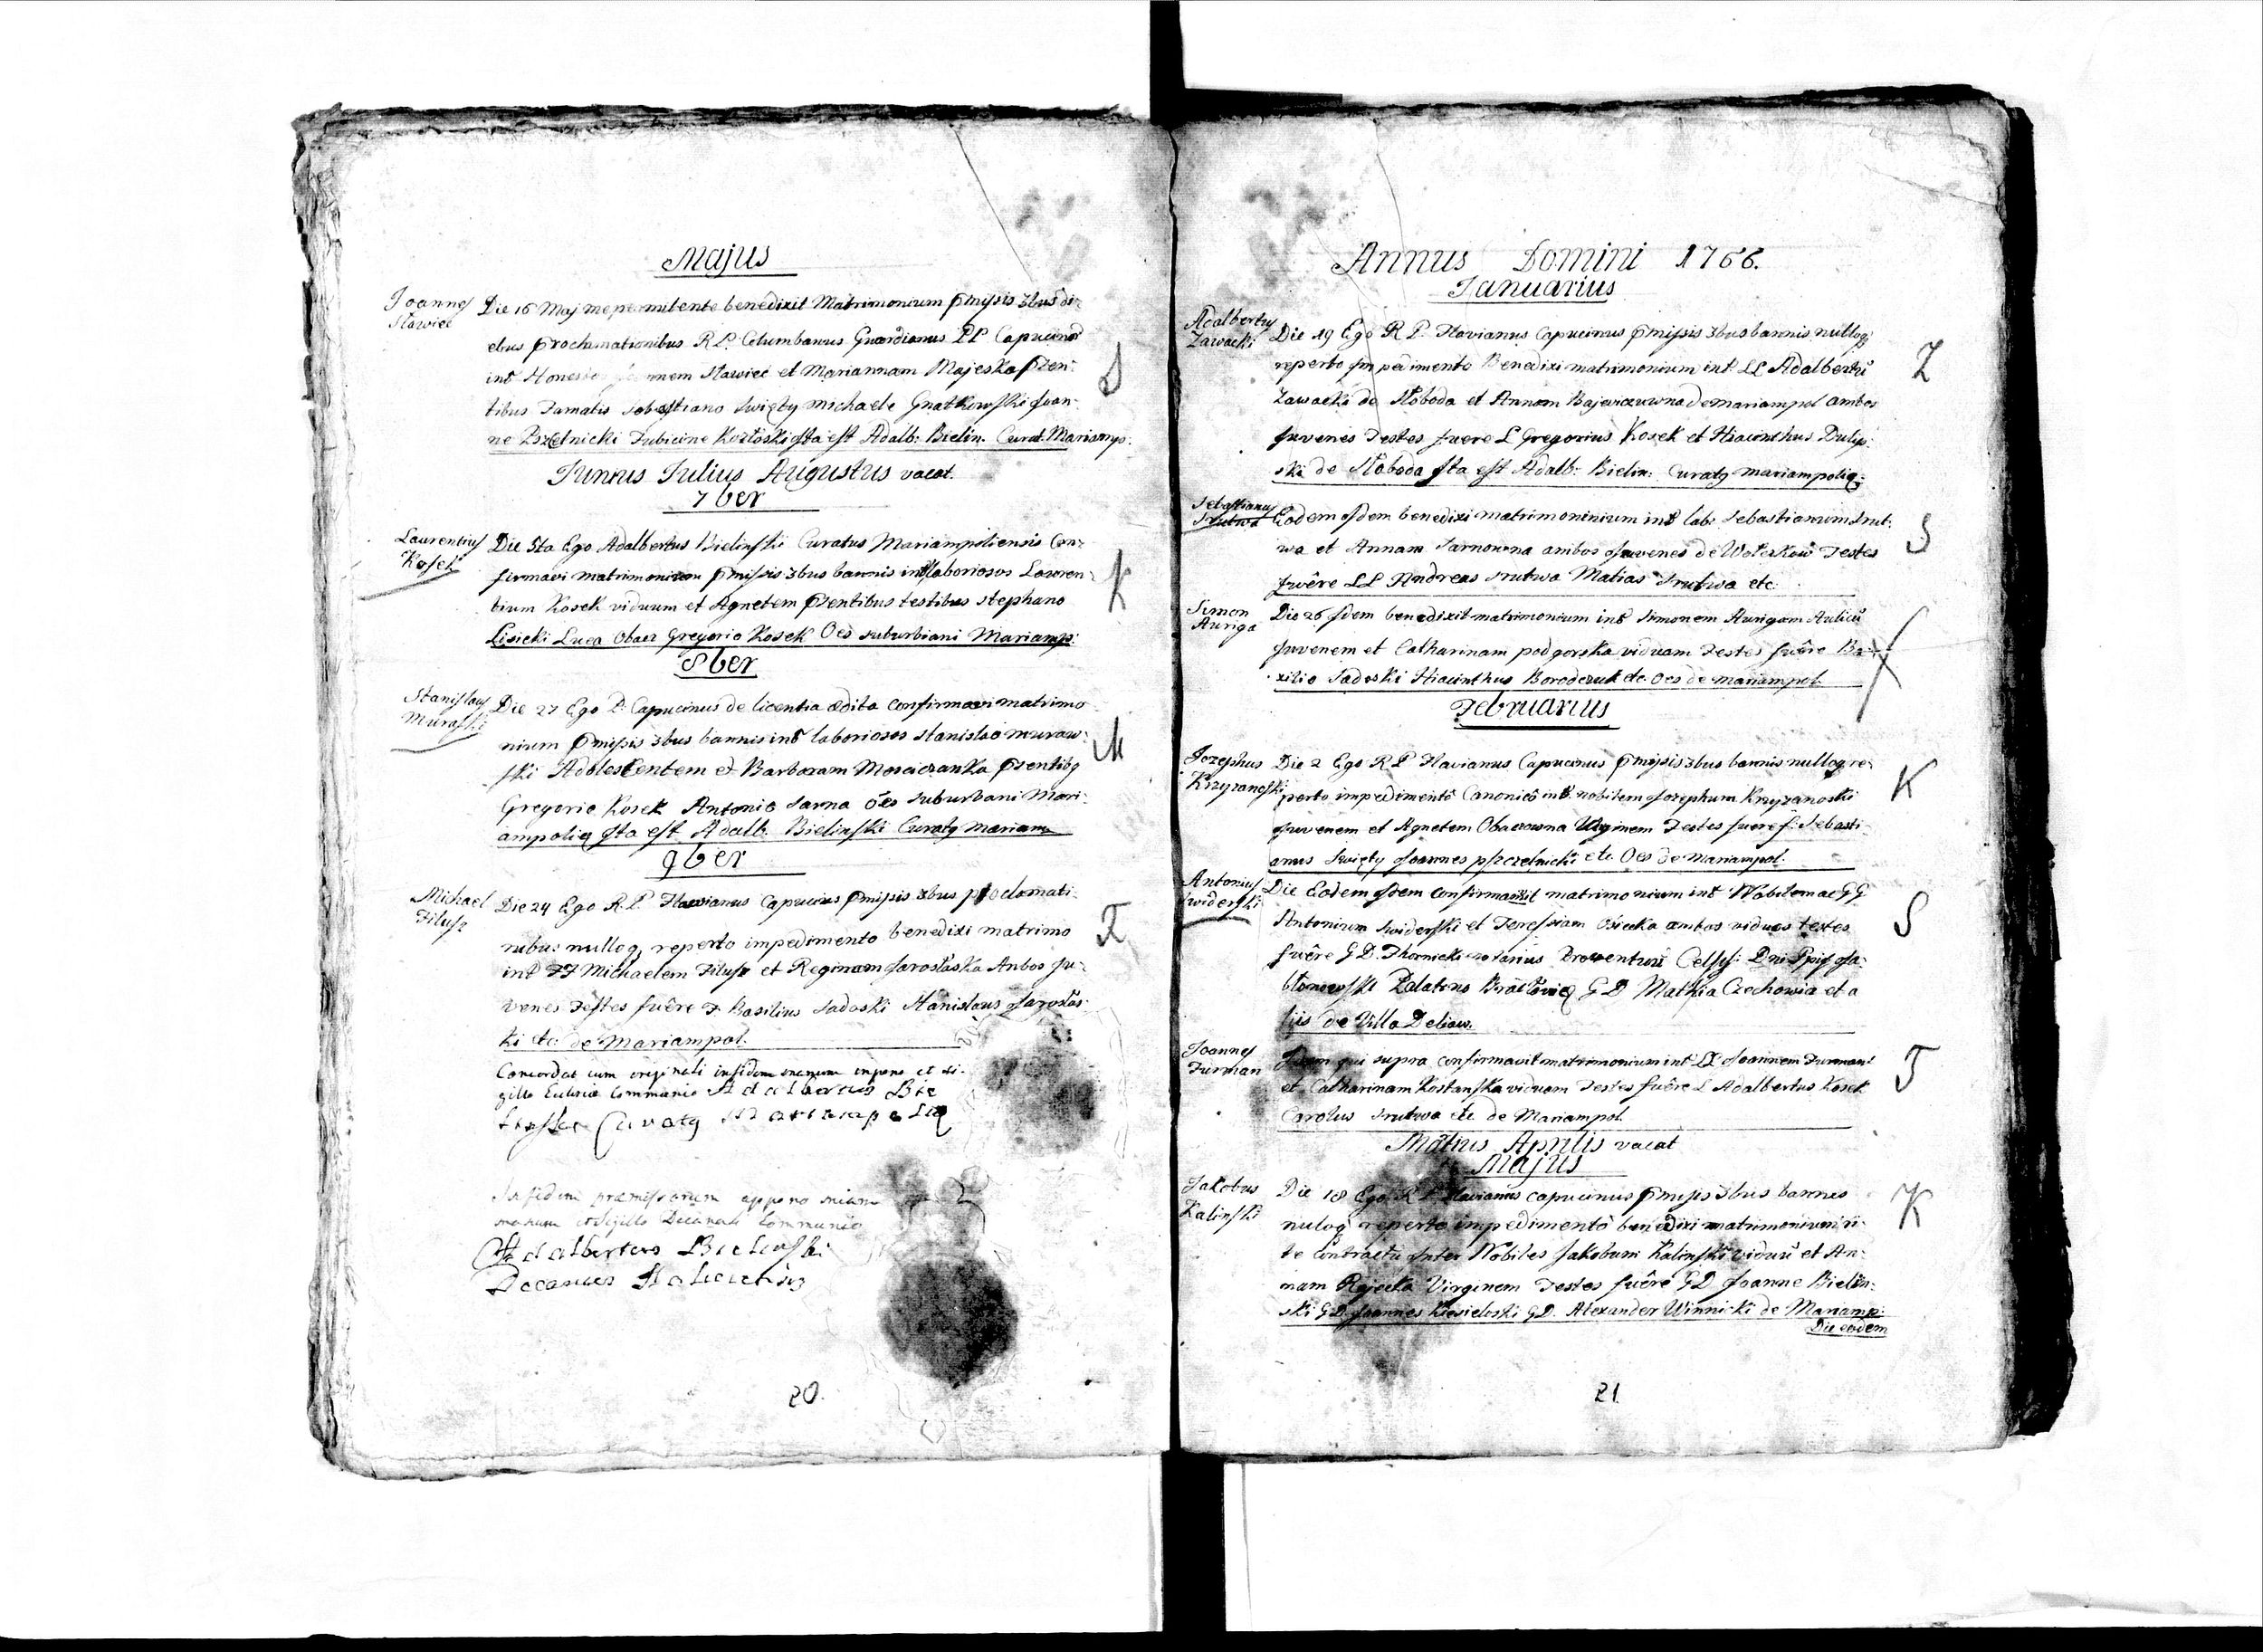 Majus
Joannes
Slawiec
Die 16 Maj me permitente benedixit Matrimonium pmissis 3bus di-
ebus proclamationibus R.P. Columbanus Guardianus PP Capucinor
int Honestos Joannem Slawiec et Mariannam Majeska psen-
tibus Famatis Sebastiano Swięty Michaele Gnatkowski Joan-
ne Pszczelnicki Tubicine Kozłoski Ita est Adalb: Bielin: Curat Mariamp:
Junius Julius Augustus vacat.
7ber
Laurentius
Kosek
Die 5ta Ego Adalbertus Bielinski Curatus Mariampoliensis Con-
firmavi matrimonium pmissis 3bus bannis int laboriosos Lauren-
tium Kosek viduum et Agnetem psentibus testibus Stephano
Lisicki Luca Obacz Gregorio Kosek Oes suburbiani Mariamp:
8ber
Stanislaus
Muraski
Die 27 Ego P. Capucinus de licentia ædita confirmavi matrimo
nium pmissis 3bus bannis int laboriosos Stanislao muraw-
ski Adolescentem et Barbaram Mosciczanka psentibq
Gregorio Kosek Antonio Sarna Oes suburbani Mari-
ampoliq Ita est Adalb. Bielinski Curatq Mariam
9ber
Michael
Filusz
Die 24 Ego R.P. Flavianus Capucinus pmissis 3bus proclamati-
nibus nulloq reperto impedimento benedixi matrimo
int FF Michaelem Filusz et Reginam Jarosłaska Anbos Ju-
venes Testes fuêre F. Basilius Sadoski Stanislaus Jarosłas-
ki etc: de Mariampol.
Concordat cum originali in fidem manum inpono et si-
gillo Eclesiæ Communio Adalbertus Bie
linski Curatq Mariampoliq
In fidem præmissorum appono miam
manum et Sigillo Decanali Communio
Adalbertus Bielinski
Decanus Haliciensis
20.
Annus Domini 1766.
Januarius
Adalbertus
Zawacki
Die 19 Ego R.P. Flavianus Capucinus pmissis 3bus bannis nulloq
reperto impedimento Benedixi matrimonium int LL Adalbertu
Zawacki de Słoboda et Annam Bajewiczuwna de mariampol ambos
Juvenes Testes fuere L Gregorius Kosek et Hiacinthus Dulep-
ski de Słoboda Ita est Adalb: Bielin: Curatq mariampoliq
Sebastianus
Srutwa
Eodem Idem benedixi matrimoninium int lab: Sebastianum Srut-
wa et Annam Sarnowna ambos Juvenes de Wołczkow Testes
fuêre LL Andreas Srutwa Matias Srutwa etc.
Simon
Auriga
Die 26 Idem benedixit matrimonium int Simonem Aurigam Aulicu
Juvenem et Catharinam podgorska viduam Testes fuêre Ba-
zilio Sadoski Hiacinthus Borodczuk etc. Oes de mariampol.
Februarius
Jozephus
Krzyzanoski
Die 2 Ego R.P. Flavianus Capucinus pmissis 3bus bannis nulloq re-
perto impedimentô Canonicô int nobilem Jozephum Krzyzanoski
Juvenem et Agnetem Obaczowna Virginem Testes fuere f: Sebasti-
anus Swięty Joannes pszczelnicki etc. Oes de Mariampol.
Antonius
Swiderski
Die Eodem Idem Confirmavit matrimonium int Nobilem ac GG
Antonium Swiderski et Teressiam Osiecka ambos viduos testes
fuêre G.D. Thornicki notarius Proventuu Celsis: Dni Ppis Ja-
błonowski Palatino Bracłavię G D Mathia Czechowia et a
liis de Villa Deliow.
Joannes
Furman
Idem qui supra confirmavit matrimonium int LL Joannem Furman
et Catharinam Kostanska viduam Testes fuêre L Adalbertus Kosek
Carolus Srutwa etc de Mariampol.
Matius Aprilis vacat
Majus
Jakobus
Kalinski
Die 18 Ego R.P. Flavianus capucinus pmissis 3bus bannis
nuloq reperto impedimentô benedixi matrimonium ri-
te Contractu Inter Nobiles Jakobum Kalinski viduu et An-
nam Rejecta Virginem Testes fuêre GD Joanne Bielin-
ski G.D. Joannes Kisieloski G.D. Alexander Winnicki de Mariamp:
Die eodem
21.